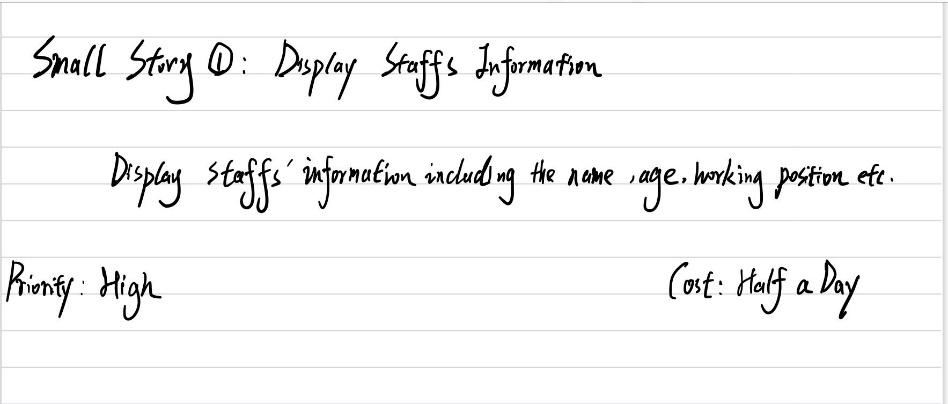 Small Story ①: Display Staffs Information
Display staffs' information including the name, age, working position etc.
Priority: High
Cost: Half a Day